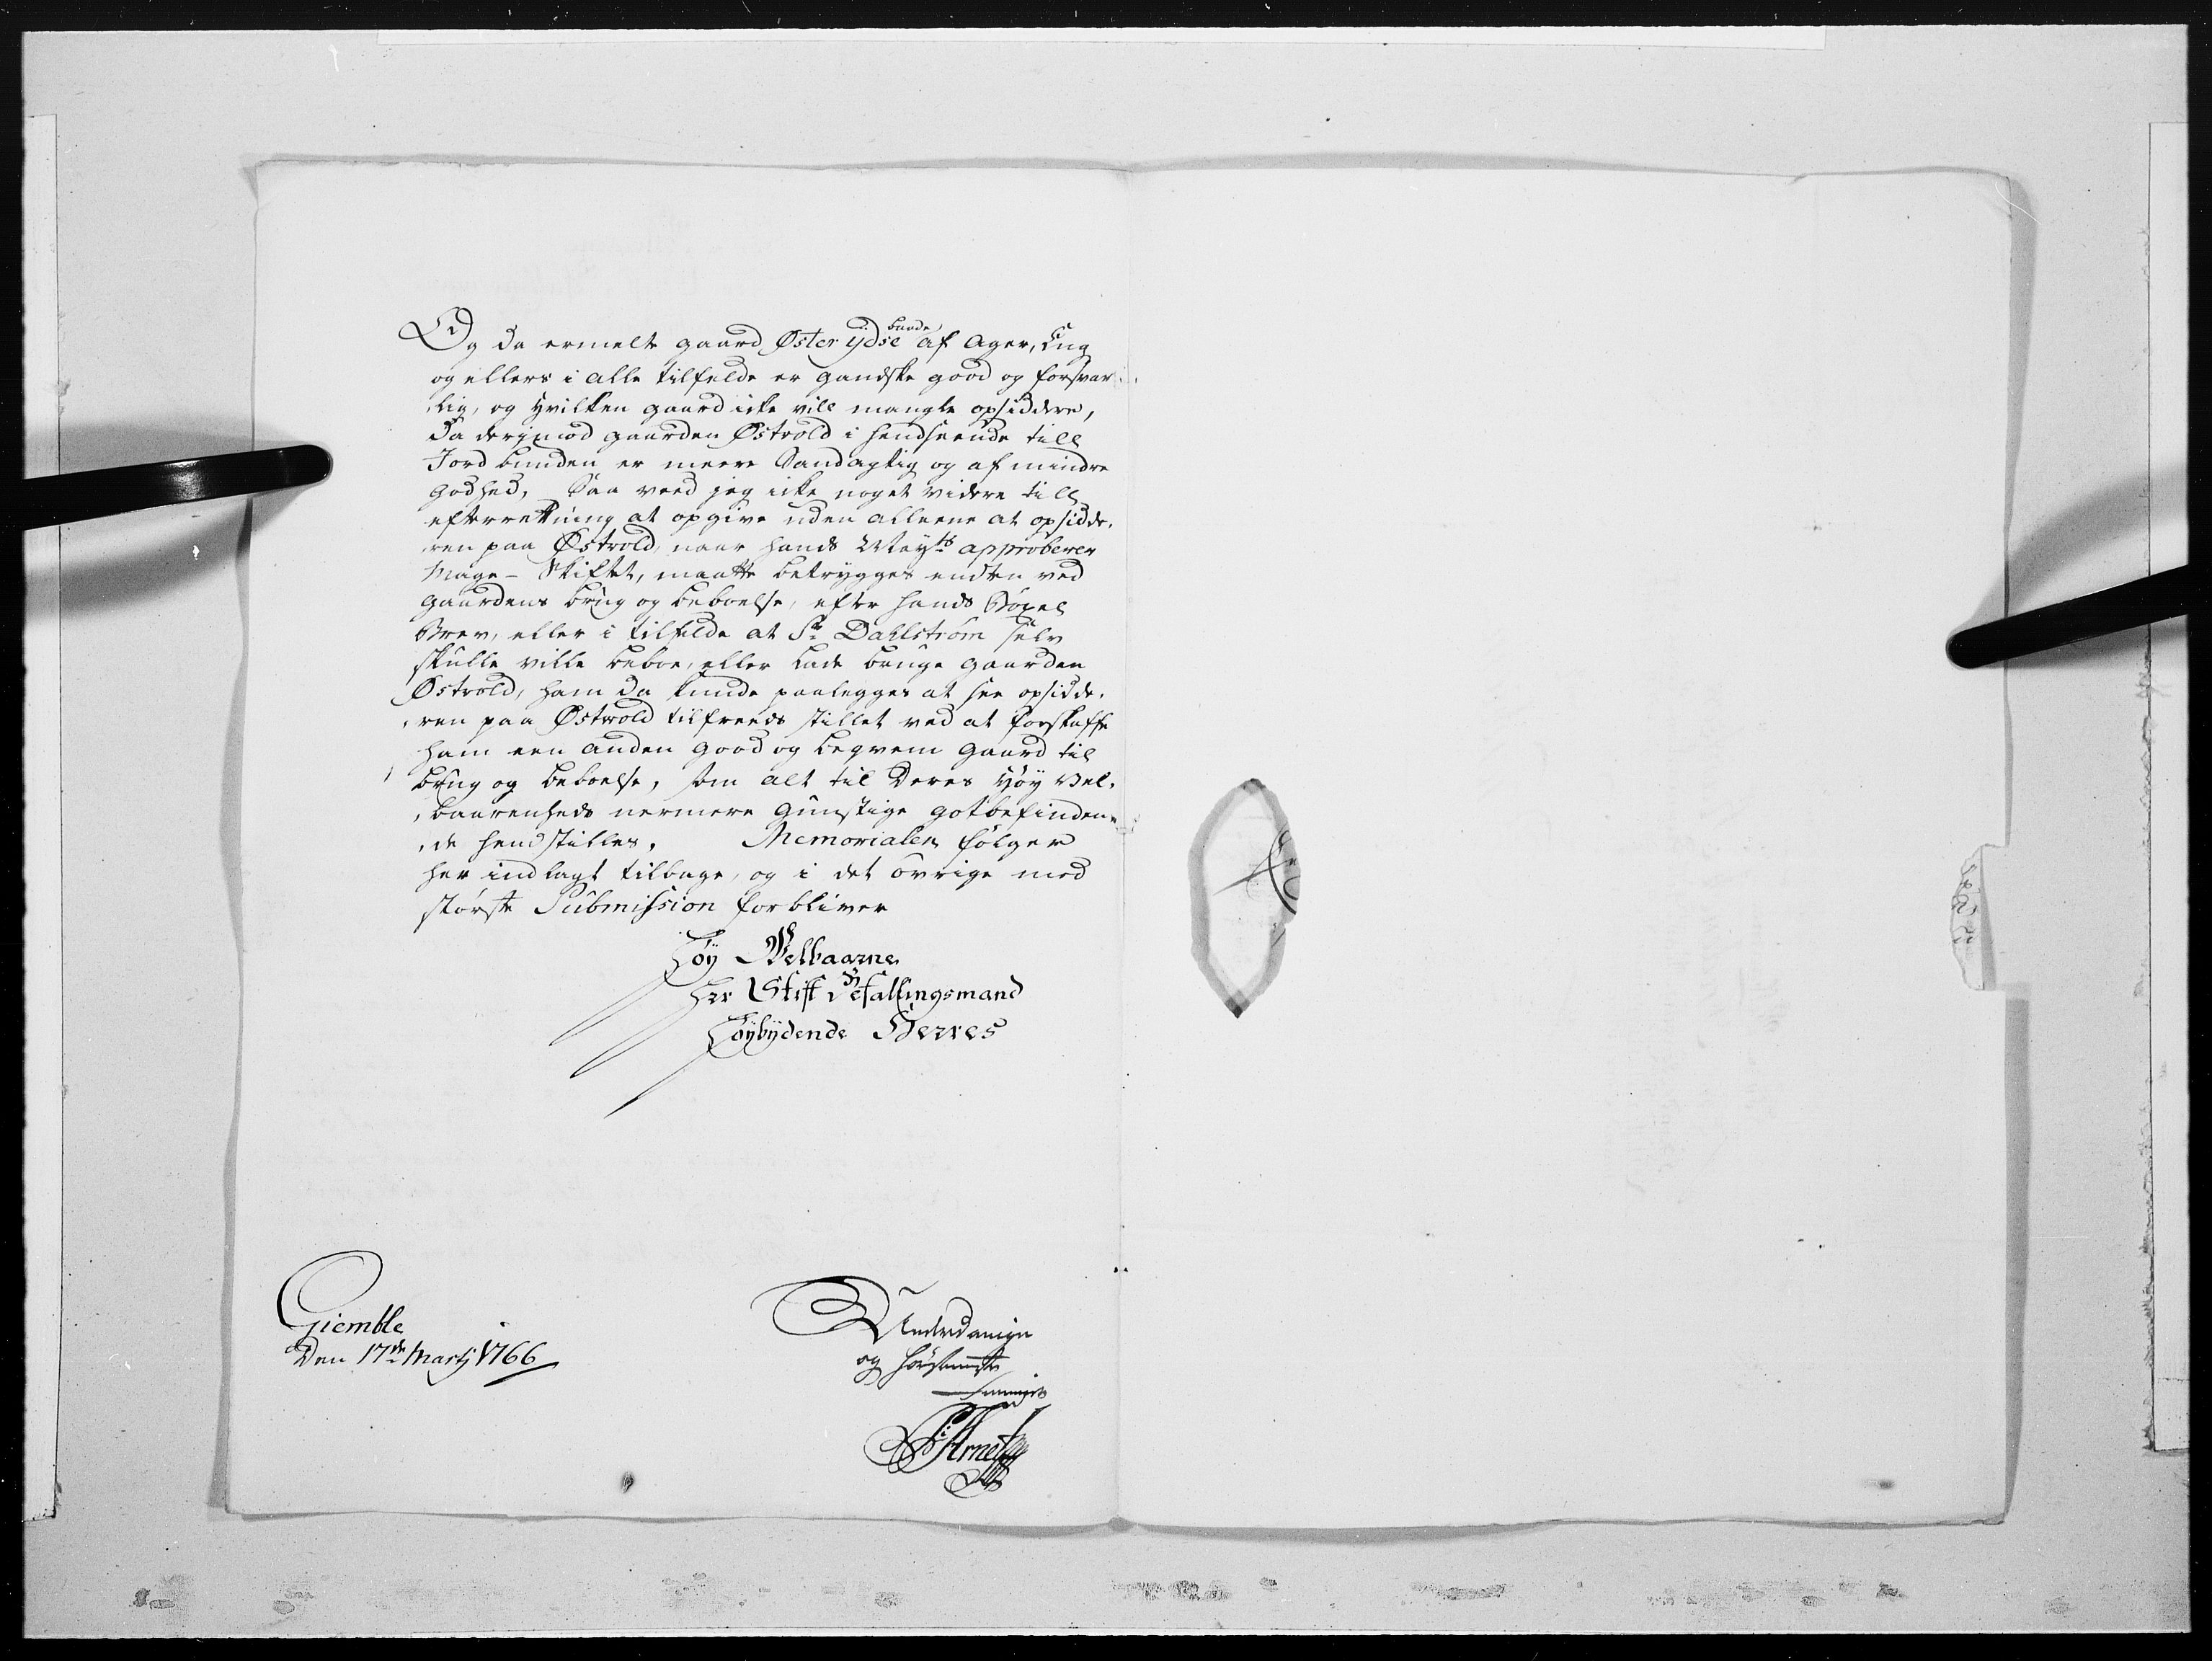 Og da ermelte gaard Øster ÿdse baade af Ager, Eng
og ellers i alle tilfelde er gandske good og forsvar-
lig, og hvilken gaard icke vill mangle opsiddere,
da derjmod gaarden Østvold i henseende till
Jord bunden er meere Sandagtig og af mindre
godhed, Saa veed jeg icke noget videre till
efterretning at opgive uden alleene at opsidde-
ren paa Østvold, naar hands Mayts approberer
Mage-Skiftet, maatte betrygges enten ved
gaardens brug og beboelse, efter hands Böxel
Brev, eller i tilfelde at Sr Dahlström selv
skulle ville beboe, eller lade bruge gaarden
Østvold, ham da kunde paalegges at see opsidde-
ren paa Østvold tilfreeds stillet ved at forskaffe
ham een anden good og beqvem gaard til
brug og beboelse, som alt til Deres Höy Vel-
baarenheds nermere gunstige gotbefinden-
de henstilles. Memorialen fölger
her indlagt tilbage, og i det övrige med
störste Submission forbliver
Höy Velbaarne
Her Stift Befallingsmand
Höybÿdende Herres
Giemble
Den 17de Martj 1766
Underdanige
og hörsomste
tienner
Arnet